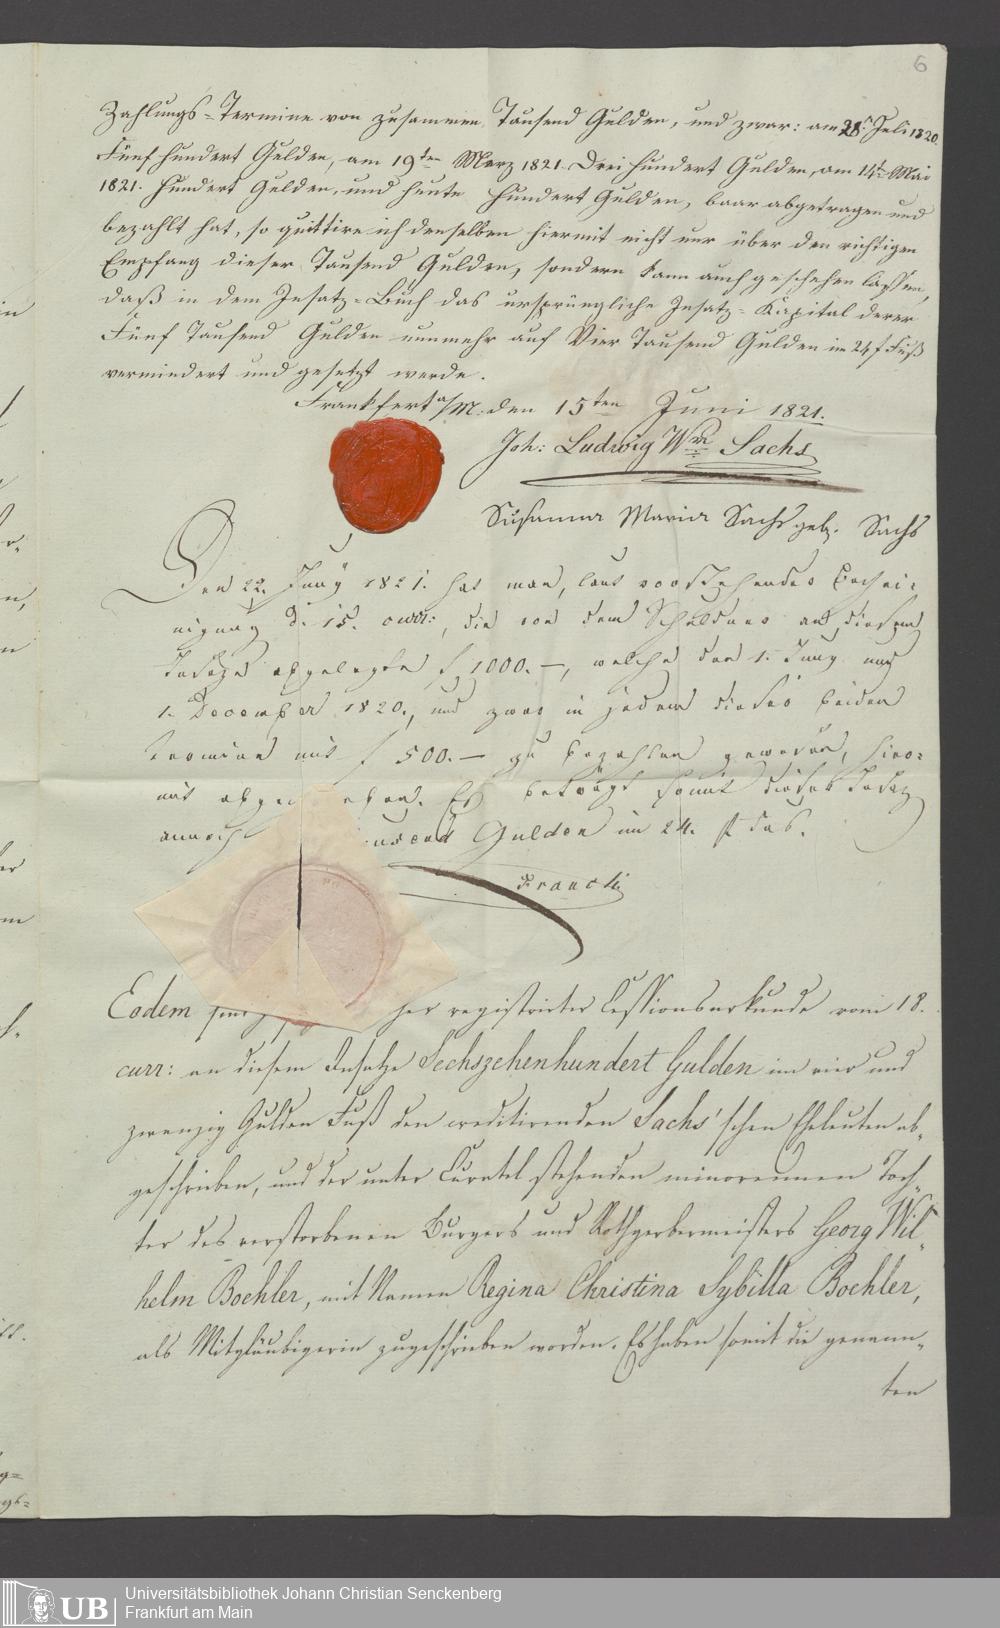 6
Zahlungs-Termine von zusammen Tausend Gulden, und zwar: am 28t. Juli 1820.
Fünfhundert Gulden, am 19ten März 1821. Dreihundert Gulden, am 14t. Mai
1821. Hundert Gulden, und heute Hundert Gulden, baar abgetragen und
bezahlt hat, so quittire ich denselben hiermit nicht nur über den richtigen
Empfang dieser Tausend Gulden, sondern kann auch geschehen lassen,
daß in dem Insatz-Buch das ursprüngliche Insatz-Kapital derer
Fünf Tausend Gulden nunmehr auf Vier Tausend Gulden im 24 f Fuß
vermindert und gesetzt werde.
Frankfurt a/M. den 15ten Juni 1821.
Joh: Ludwig Wm Sachs
Susanna Maria Sachs geb. Sachs
Den 22. Juny 1821. hat man, laut vorstehender Beschei-
nigung d. 15. curr:, die von dem Schuldner an diesem
Insatze abgelegte f 1000.—, welche den 1. Juny und
1. December 1820., und zwar in jedem dieser beiden
Termine mit f 500.— zu bezahlen gewesen, hier-
mit abgeschrieben. Es beträgt somit dieser Insatz
annoch Gulden im 24. f Fus.
Franck
Eodem sind registrirter Cessionsurkunde vom 18.
curr: an diesem Insatze Sechszehenhundert Gulden im vier und
zwanzig Gulden Fuß den creditirenden Sachs'schen Eheleuten ab-
geschrieben, und der unter Curatel stehenden minorennen Toch-
ter des verstorbenen Burgers und Rothgerbermeisters Georg Wil-
helm Boehler, mit Namen Regina Christina Sybilla Boehler,
als Mitgläubigerin zugeschrieben worden. Es haben somit die genann-
ten
UB
Universitätsbibliothek Johann Christian Senckenberg
Frankfurt am Main